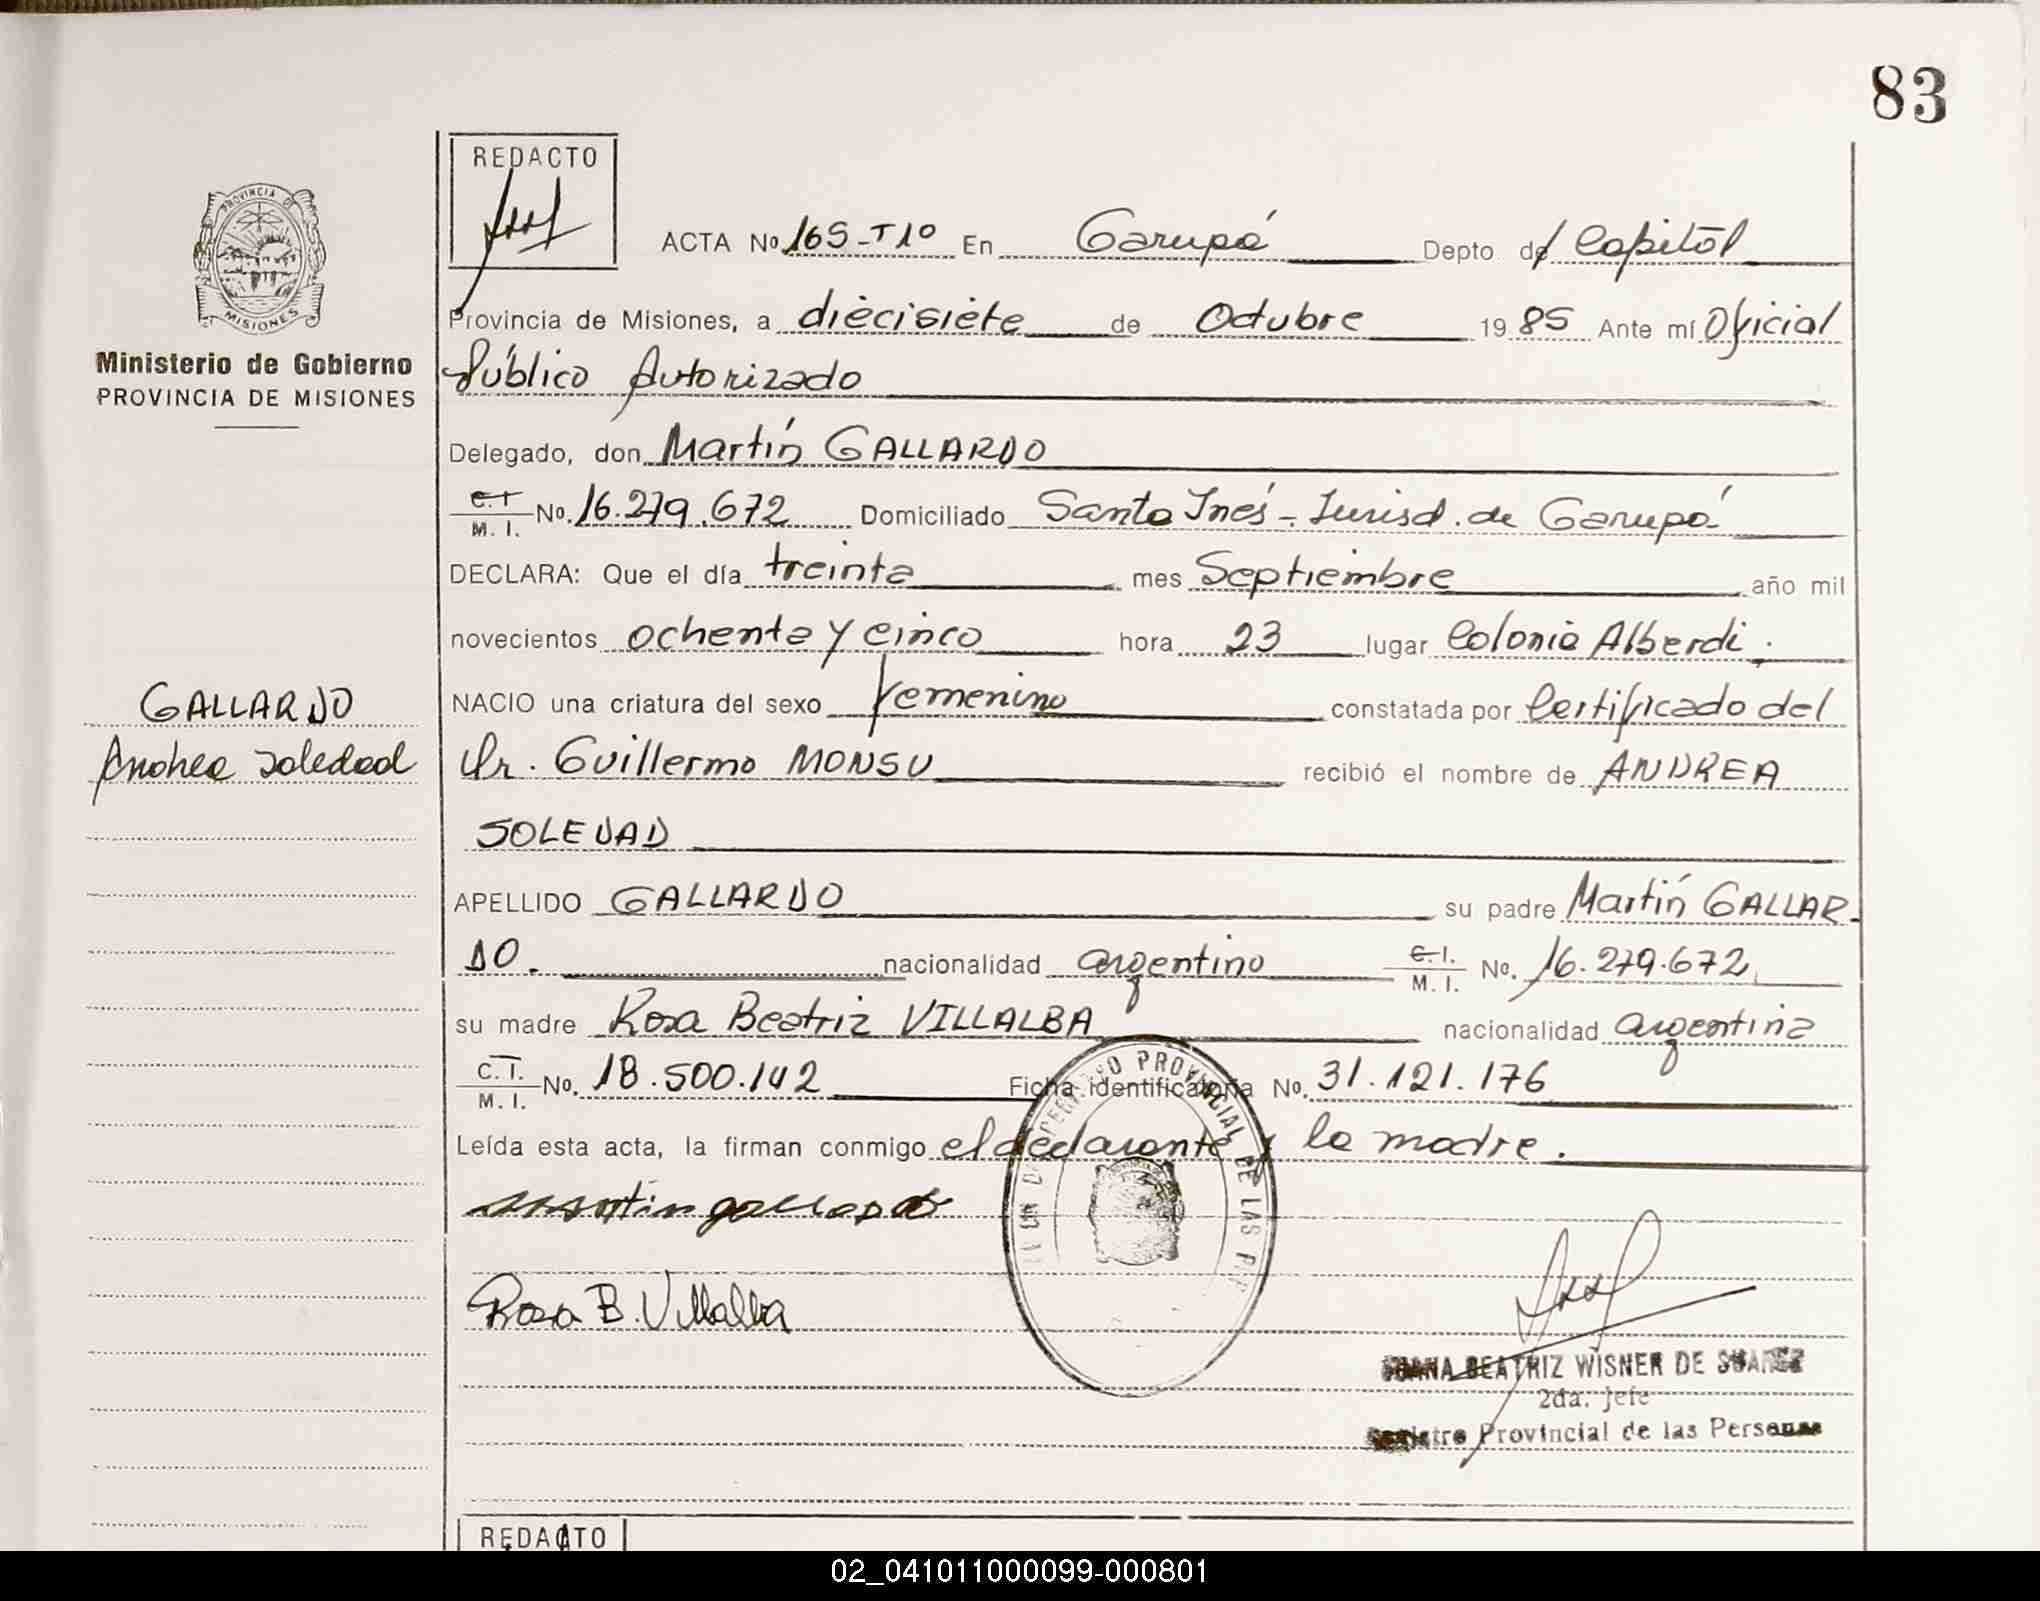 83
REDACTO
PROVINCIA DE
MISIONES
Ministerio de Gobierno
PROVINCIA DE MISIONES
GALLARDO
Andrea Soledad
ACTA No 165-T1º En Garupá Depto de Capital
Provincia de Misiones, a diecisiete de Octubre 1985 Ante mí Oficial
Público Autorizado
Delegado, don Martín GALLARDO
C.I. M. I. No. 16.279.672 Domiciliado Santa Inés - Jurisd. de Garupá
DECLARA: Que el día treinta mes Septiembre año mil
novecientos ochenta y cinco hora 23 lugar Colonia Alberdi.
NACIO una criatura del sexo femenino constatada por Certificado del
Dr. Guillermo MONSU recibió el nombre de ANDREA
SOLEDAD
APELLIDO GALLARDO su padre Martín GALLAR-
DO. nacionalidad argentino C.I. M. I. No. 16.279.672
su madre Rosa Beatriz VILLALBA nacionalidad argentina
C.I. M. I. No. 18.500.142 Ficha identificatoria No. 31.121.176
Leída esta acta, la firman conmigo el declarante y la madre.
martin gallardo
Rosa B. Villalba
PROVINCIAL DE LAS
BEATRIZ WISNER DE SUAREZ
2da. Jefe
Registro Provincial de las Personas
REDACTO
02_041011000099-000801